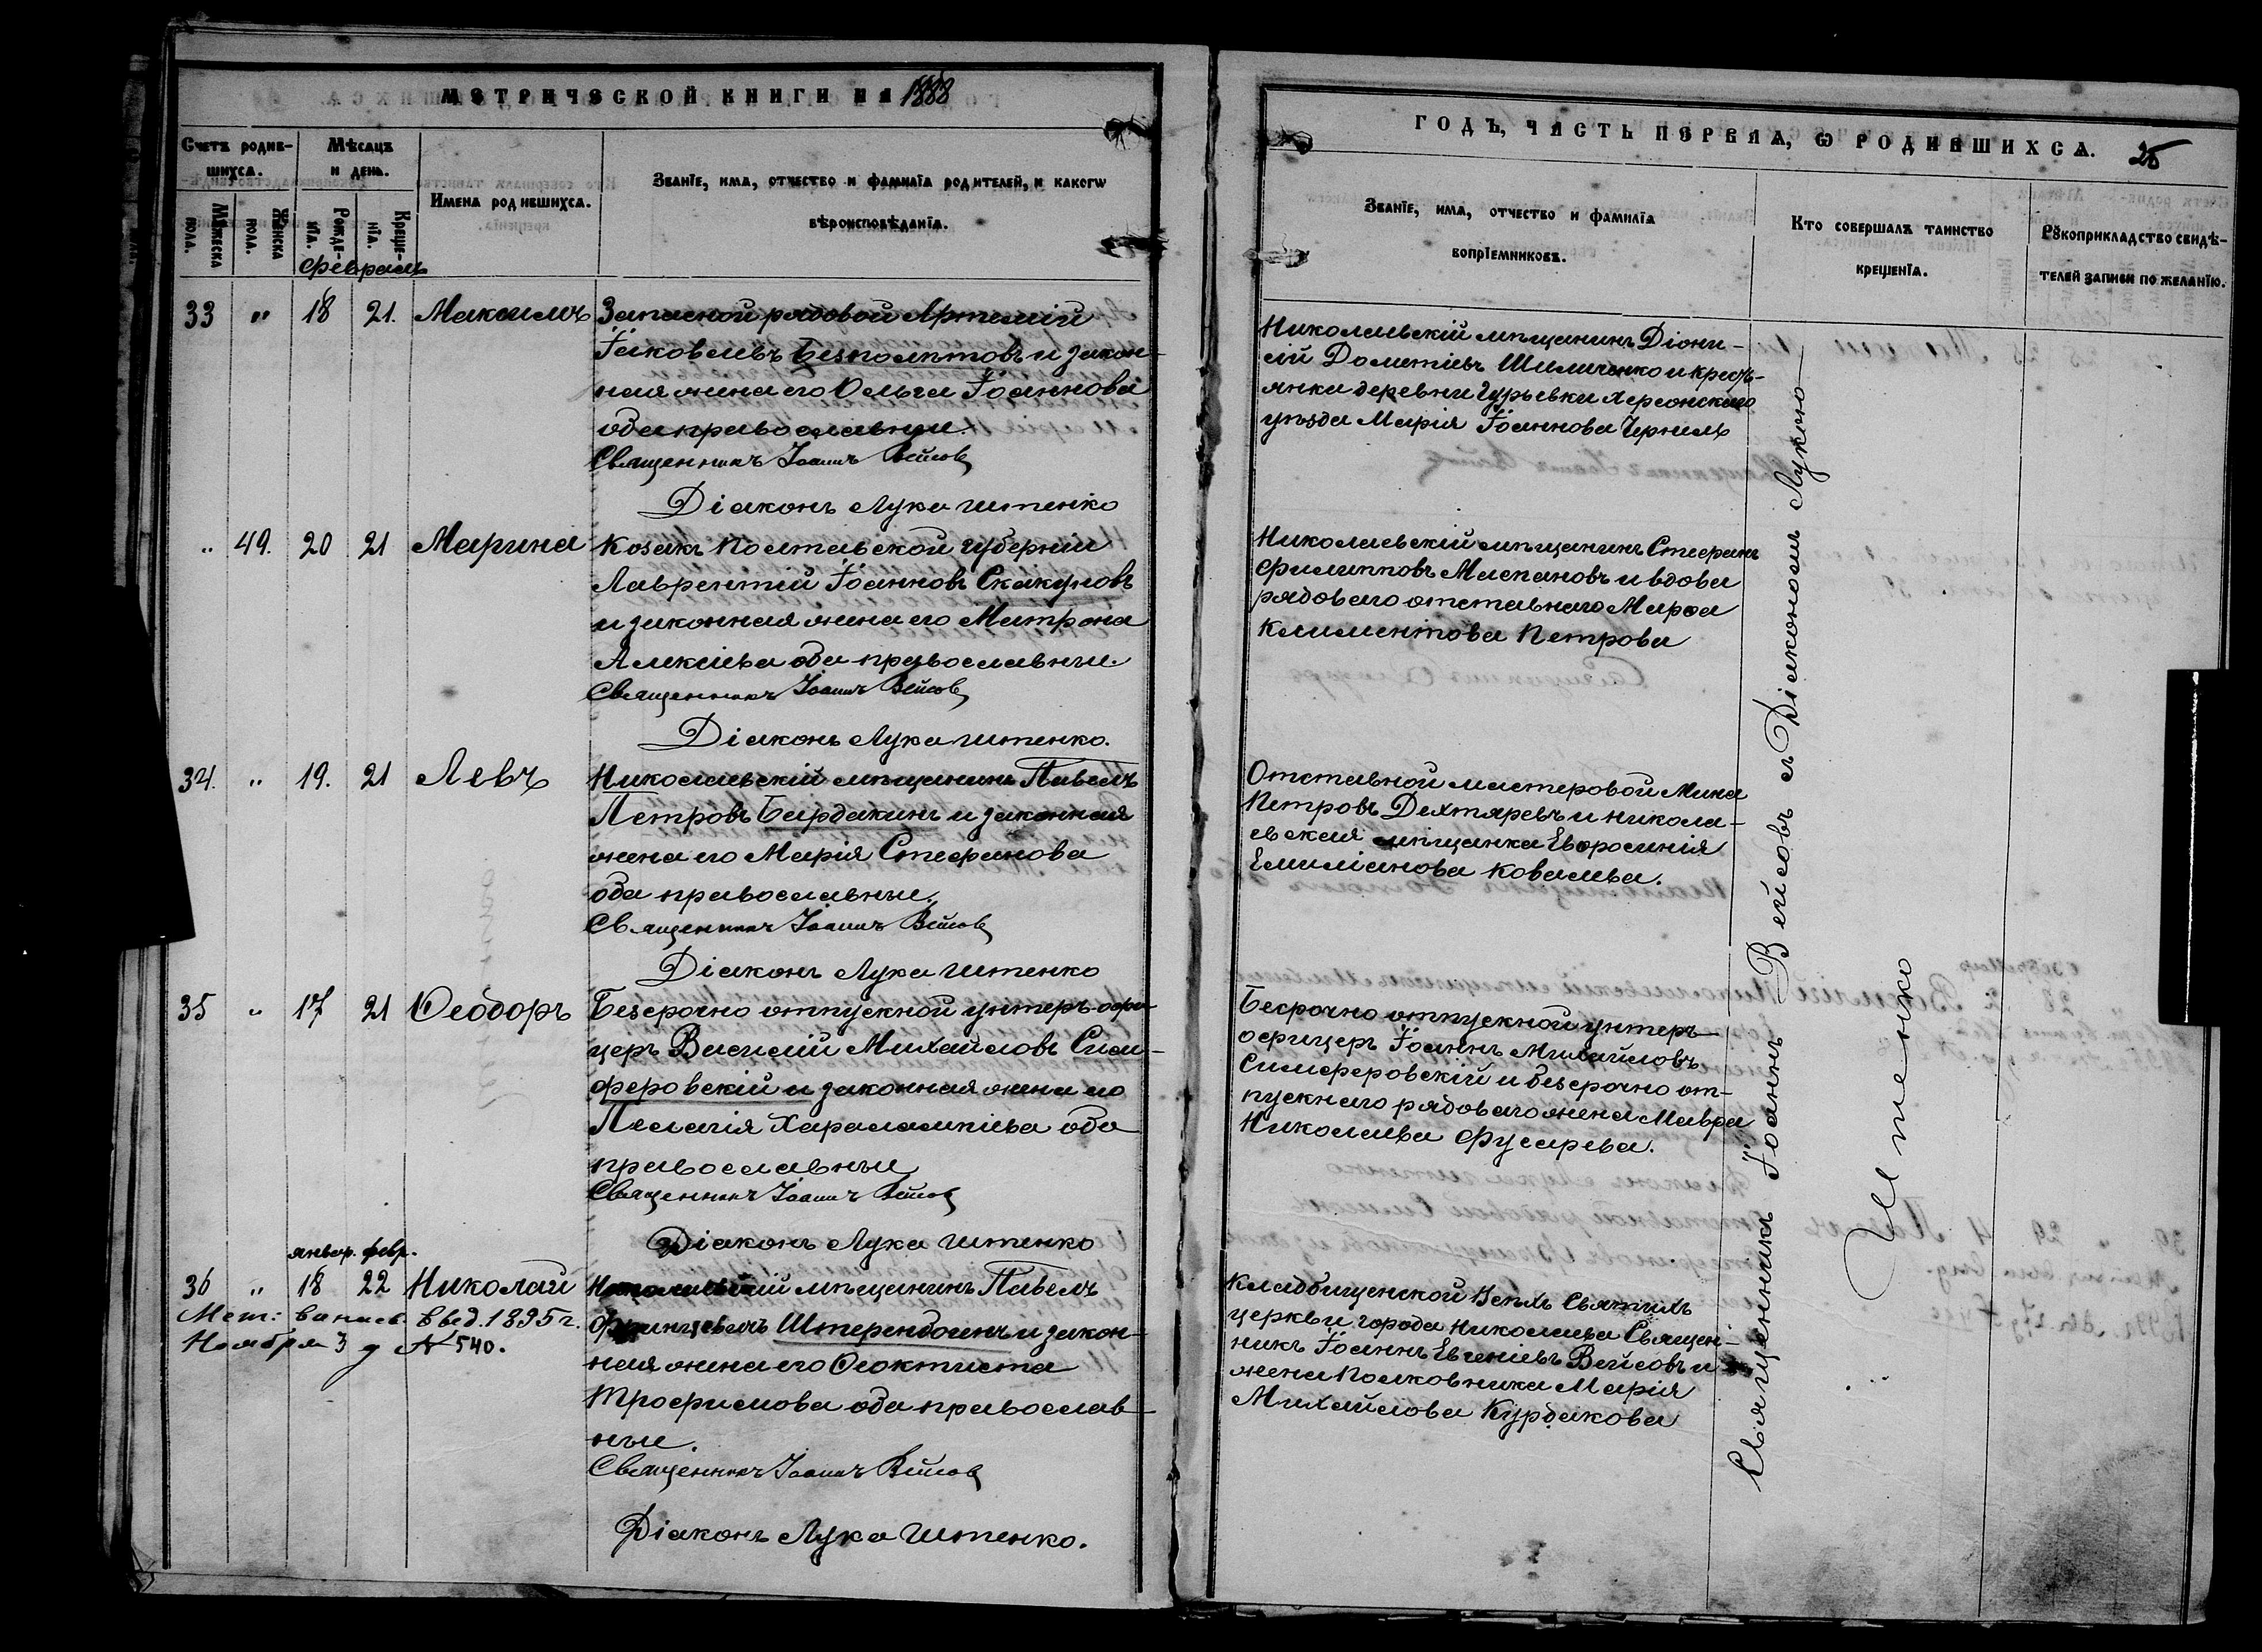 МЕТРИЧЕСКОЙ КНИГИ НА 1888
Счетъ родив-
шихсѧ.
Мѣсяцъ
и день.
Имена родившихсѧ.
Званїе, имѧ, отчество и фамилїѧ родителей, и какогѡ
вѣроисповѣданїѧ.
Мꙋжеска
пола.
Женска
пола.
Рожде-
нїѧ.
Креще-
нїѧ.
Февраль
33 " 18 21. Максимъ Запасной рядовой Артемій
Іаковлевъ Безпалтовъ и закон-
ная жена его Ольга Іоаннова
оба православные.
Священникъ Іоаннъ Вейсовъ
Діаконъ Лука Штенко
" 49. 20 21 Марина Козакъ Полтавской губерніи
Лаврентій Іоанновъ Скакуновъ
и законная жена его Матрона
Алексіева оба православные.
Священникъ Іоаннъ Вейсовъ
Діаконъ Лука Штенко.
34. " 19. 21 Левъ Николаевскій мѣщанинъ Павелъ
Петровъ Бардакинъ и законная
жена его Марія Стефанова
оба православные.
Священникъ Іоаннъ Вейсовъ
Діаконъ Лука Штенко
35 " 17 21 Ѳеодоръ Безсрочно отпускной унтеръ-офи-
церъ Василій Михайловъ Сим-
феровскій и законная жена его
Пелагія Харалампіева оба
православные
Священникъ Іоаннъ Вейсовъ
Діаконъ Лука Штенко
январ. февр.
36 " 18 22 Николай Николаевскій мѣщанинъ Павелъ
Мет: выпись выд. 1895 г.
Ноября 3 д № 540.
Францевичъ Штерендогенъ и закон-
ная жена его Ѳеоктиста
Трофимова оба православ-
ные.
Священникъ Іоаннъ Вейсовъ
Діаконъ Лука Штенко.
ГОДЪ, ЧАСТЬ ПЕРВАЯ, Ѡ РОДИВШИХСѦ. 25
Званїе, имѧ, отчество и фамилїѧ
воспрїемниковъ.
Кто совершалъ таинство
крещенїѧ.
Рꙋкоприкладство свидѣ-
телей записи по желанїю.
Николаевскій мѣщанинъ Діони-
сій Дометіевъ Шиличенко и кресть-
янка деревни Гурьевки Херсонскаго
уѣзда Марія Іоаннова Черниль
Николаевскій мѣщанинъ Стефанъ
Филипповъ Маспановъ и вдова
рядоваго отставнаго Марѳа
Климентова Петрова
Отставной мастеровой Мина
Петровъ Дехтяревъ и никола-
евская мѣщанка Евфросинія
Емиліанова Ковалева.
Безсрочно отпускной унтеръ-
офицеръ Іоаннъ Михайловъ
Симферовскій и безсрочно от-
пускнаго рядоваго жена Мавра
Николаева Фусарева.
Кладбищенской Всѣхъ Святыхъ
церкви города Николаева Священ-
никъ Іоаннъ Евгеніевъ Вейсовъ и
жена Полковника Марія
Михайлова Курдакова
Священникъ Іоаннъ Вейсовъ съ Діакономъ Лукою
Штенко